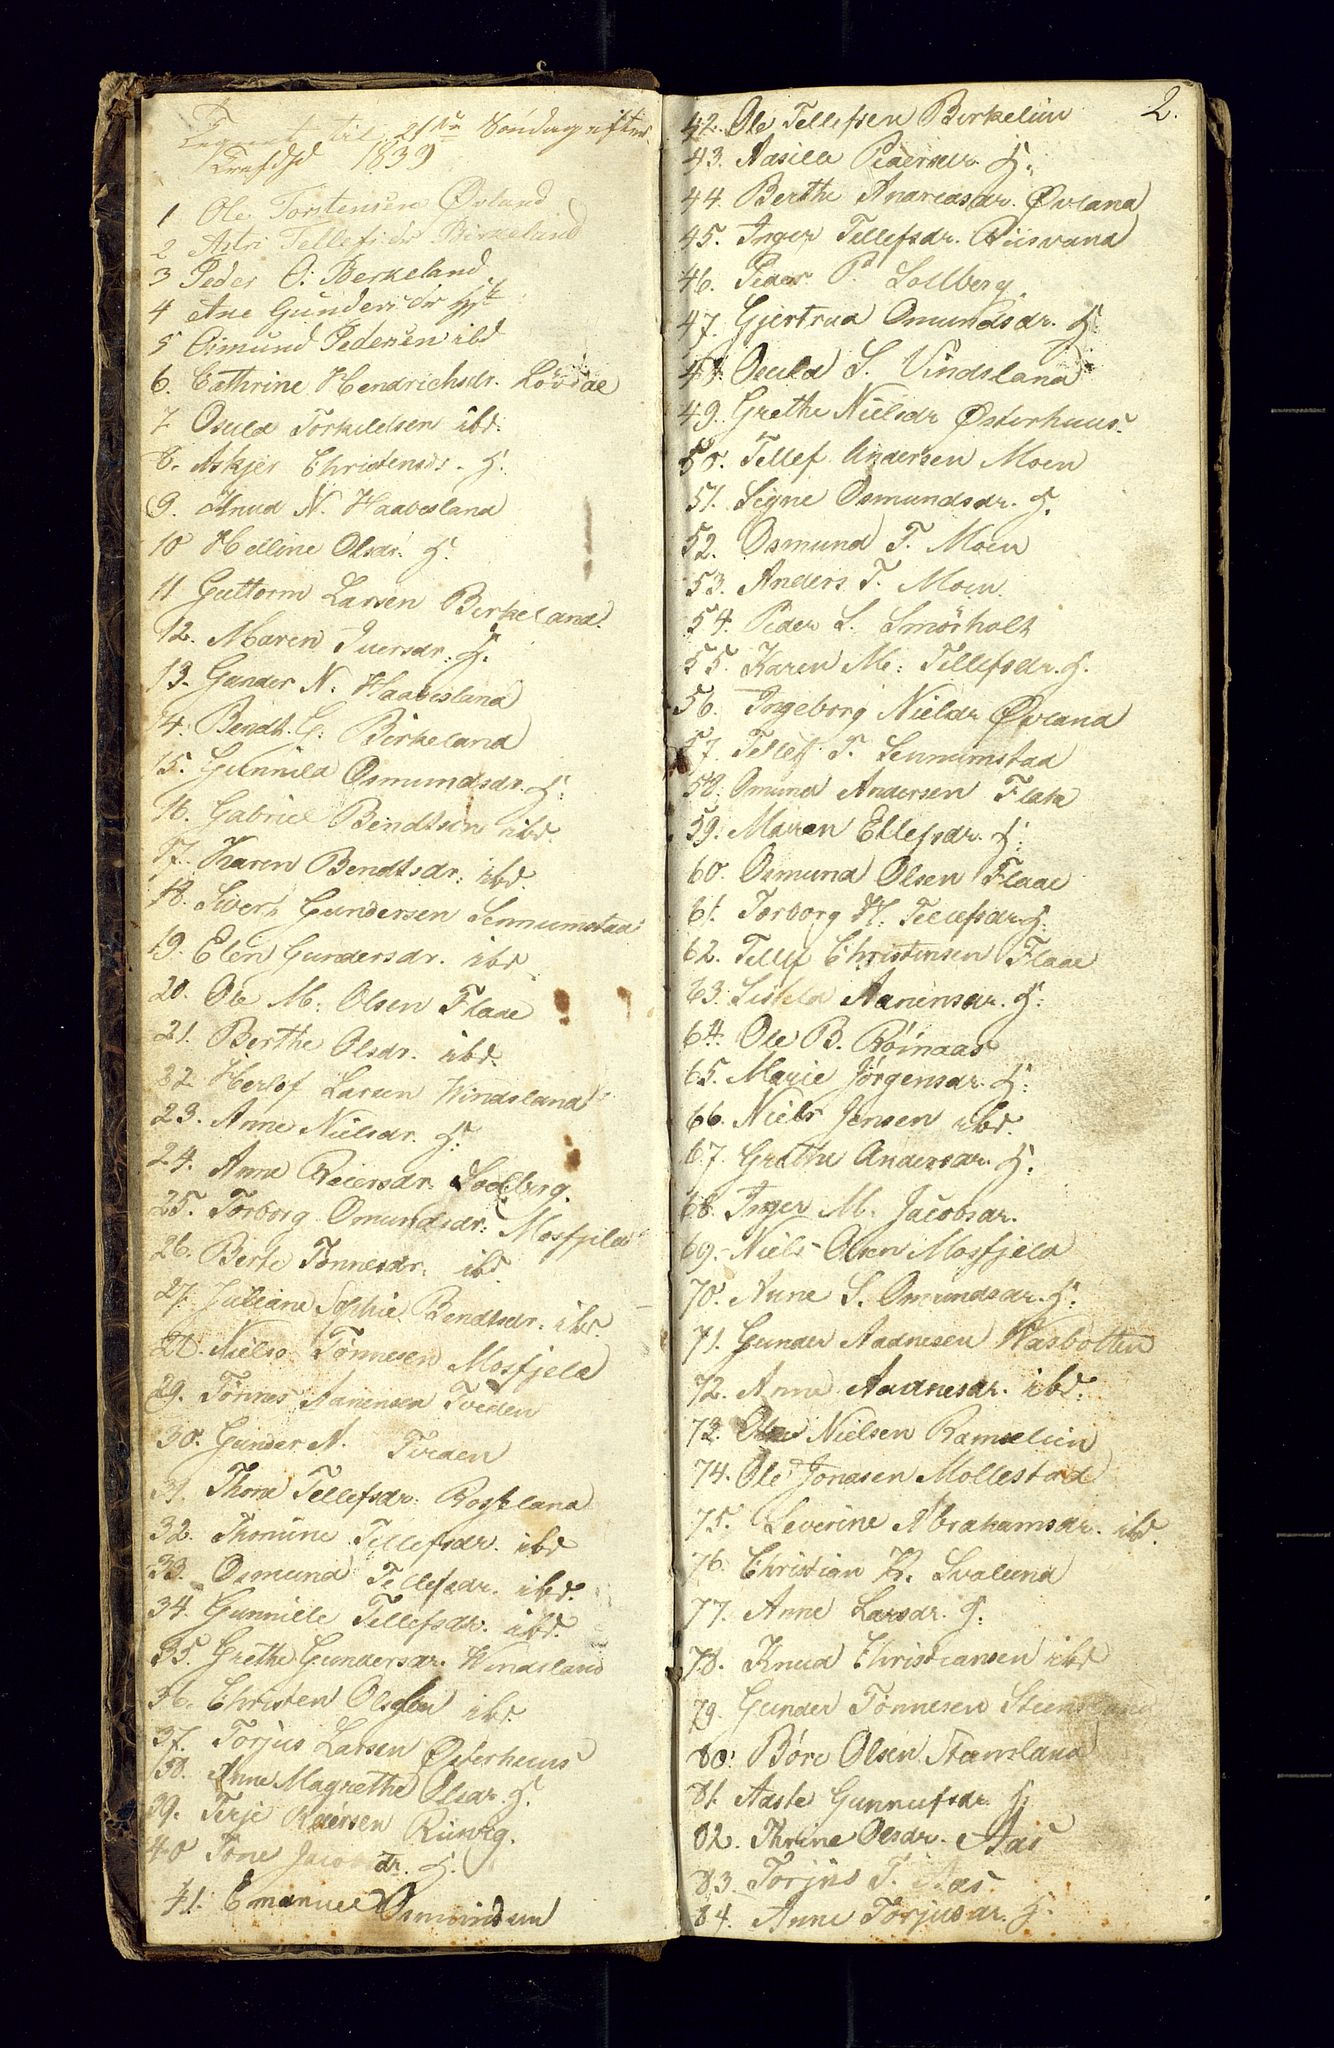 til 21de Søndag efter
Trefdhd 1839
1 Ole Torstensen Øvland
2 Astri Tellefsdr Birkeland
3 Peder O: Berkeland
4 Ane Gundersdr H
5 Osmund Pedersen ibd
6. Cathrine Hendrichsdr. Løvdal
7 Osuld Torkildsen ibd.
8. Askjer Christensdr. H.
9. Knud N. Haavesland
10 Helline Olsdr. H.
11 Guttorm Larsen Birkeland.
12. Maren Iversdr. H.
13. Gunder N. Haavesland
14. Bendt. G. Birkeland
15. Gunnild Osmundsdr. H.
16. Gabriel Bendtsen ibd.
17. Karen Bendtsdr. ibd.
18. Siver Gundersen Sennumstad
19. Elen Gundersdr. ibd
20. Ole M. Olsen Flaae
21. Berthe Olsdr. ibd.
22. Herlof Larsen Windsland
23. Anne Nielsdr. H.
24. Anne Reiersdr. Solberg.
25. Torborg Omundsdr. Mosfjeld
26. Berte Tønnesdr. ibd
27. Juliane Sophie Bendtsdr. ibd.
28. Niels Tønnesen Mosfjeld
29. Tønnes Aanensen Tveden
30. Gunder N. Tveden
31. Thore Tellefsdr. Rosseland
32. Thomine Tellefsdr. ibd
33. Osmund Tellefsdr. ibd.
34. Gunnile Tellefsdr. ibd.
35. Grethe Gundersdr. Windsland
36. Christen Olsen ibd.
37. Torjus Larsen Østerhuus
38. Anne Magrethe Olsdr. H.
39. Terje Reiersen
40 Tone Jacobsdr. H.
41. Emanuel Osmundsen
2.
42. Ole Tellefsen Birkeliin
43. Aasille Pedersdr. H.
44. Berthe Andreasdr. Øvland
45. Inger Tellefsdr. Riisvand
46. Peder P. Solberg.
47. Gjertrud Omundsdr. H.
48. Osuld S. Vindsland
49. Grethe Nielsdr Østerhuus.
50. Tellef Andersen Moen
51. Signe Osmundsdr. H.
52. Osmund T. Moen
53. Anders T. Moen.
54. Peder L. Smörholt
55. Karen M. Tellefsdr. H.
56. Ingeborg Nielsdr Øvland
57. Tellef T. Sennumstad
58. Omund Andersen Flate
59. Maren Ellefsdr. H.
60. Osmund Olsen Flaae
61. Torborg H. Tellefsdr. H.
62. Tellef Christensen Flaae
63. Siskeld Aanensdr. H.
64. Ole B. Röinaas
65. Marie Jørgensdr. H.
66. Niels Jensen ibd.
67. Grethe Andersdr. H.
68. Inger M. Jacobsdr.
69. Niels Olsen Mosfjeld
70. Anne S. Omundsdr. H.
71. Gunder Aadnesen Vasbotten
72. Anne Aadnesdr. ibd.
73. Ole Nielsen Ramselien
74. Ole Jonasen Mollestad
75. Severine Abrahamsdr. ibd.
76. Christian K. Svalund
77. Anne Larsdr. H.
78. Knud Christiansen ibd
79. Gunder Tønnesen
80. Børe Olsen Steinsland
81. Aaste Gunnufsdr. H.
82. Thrine Olsdr. Aas
83. Torjus T. Aas
84. Anne Torjusdr. H.